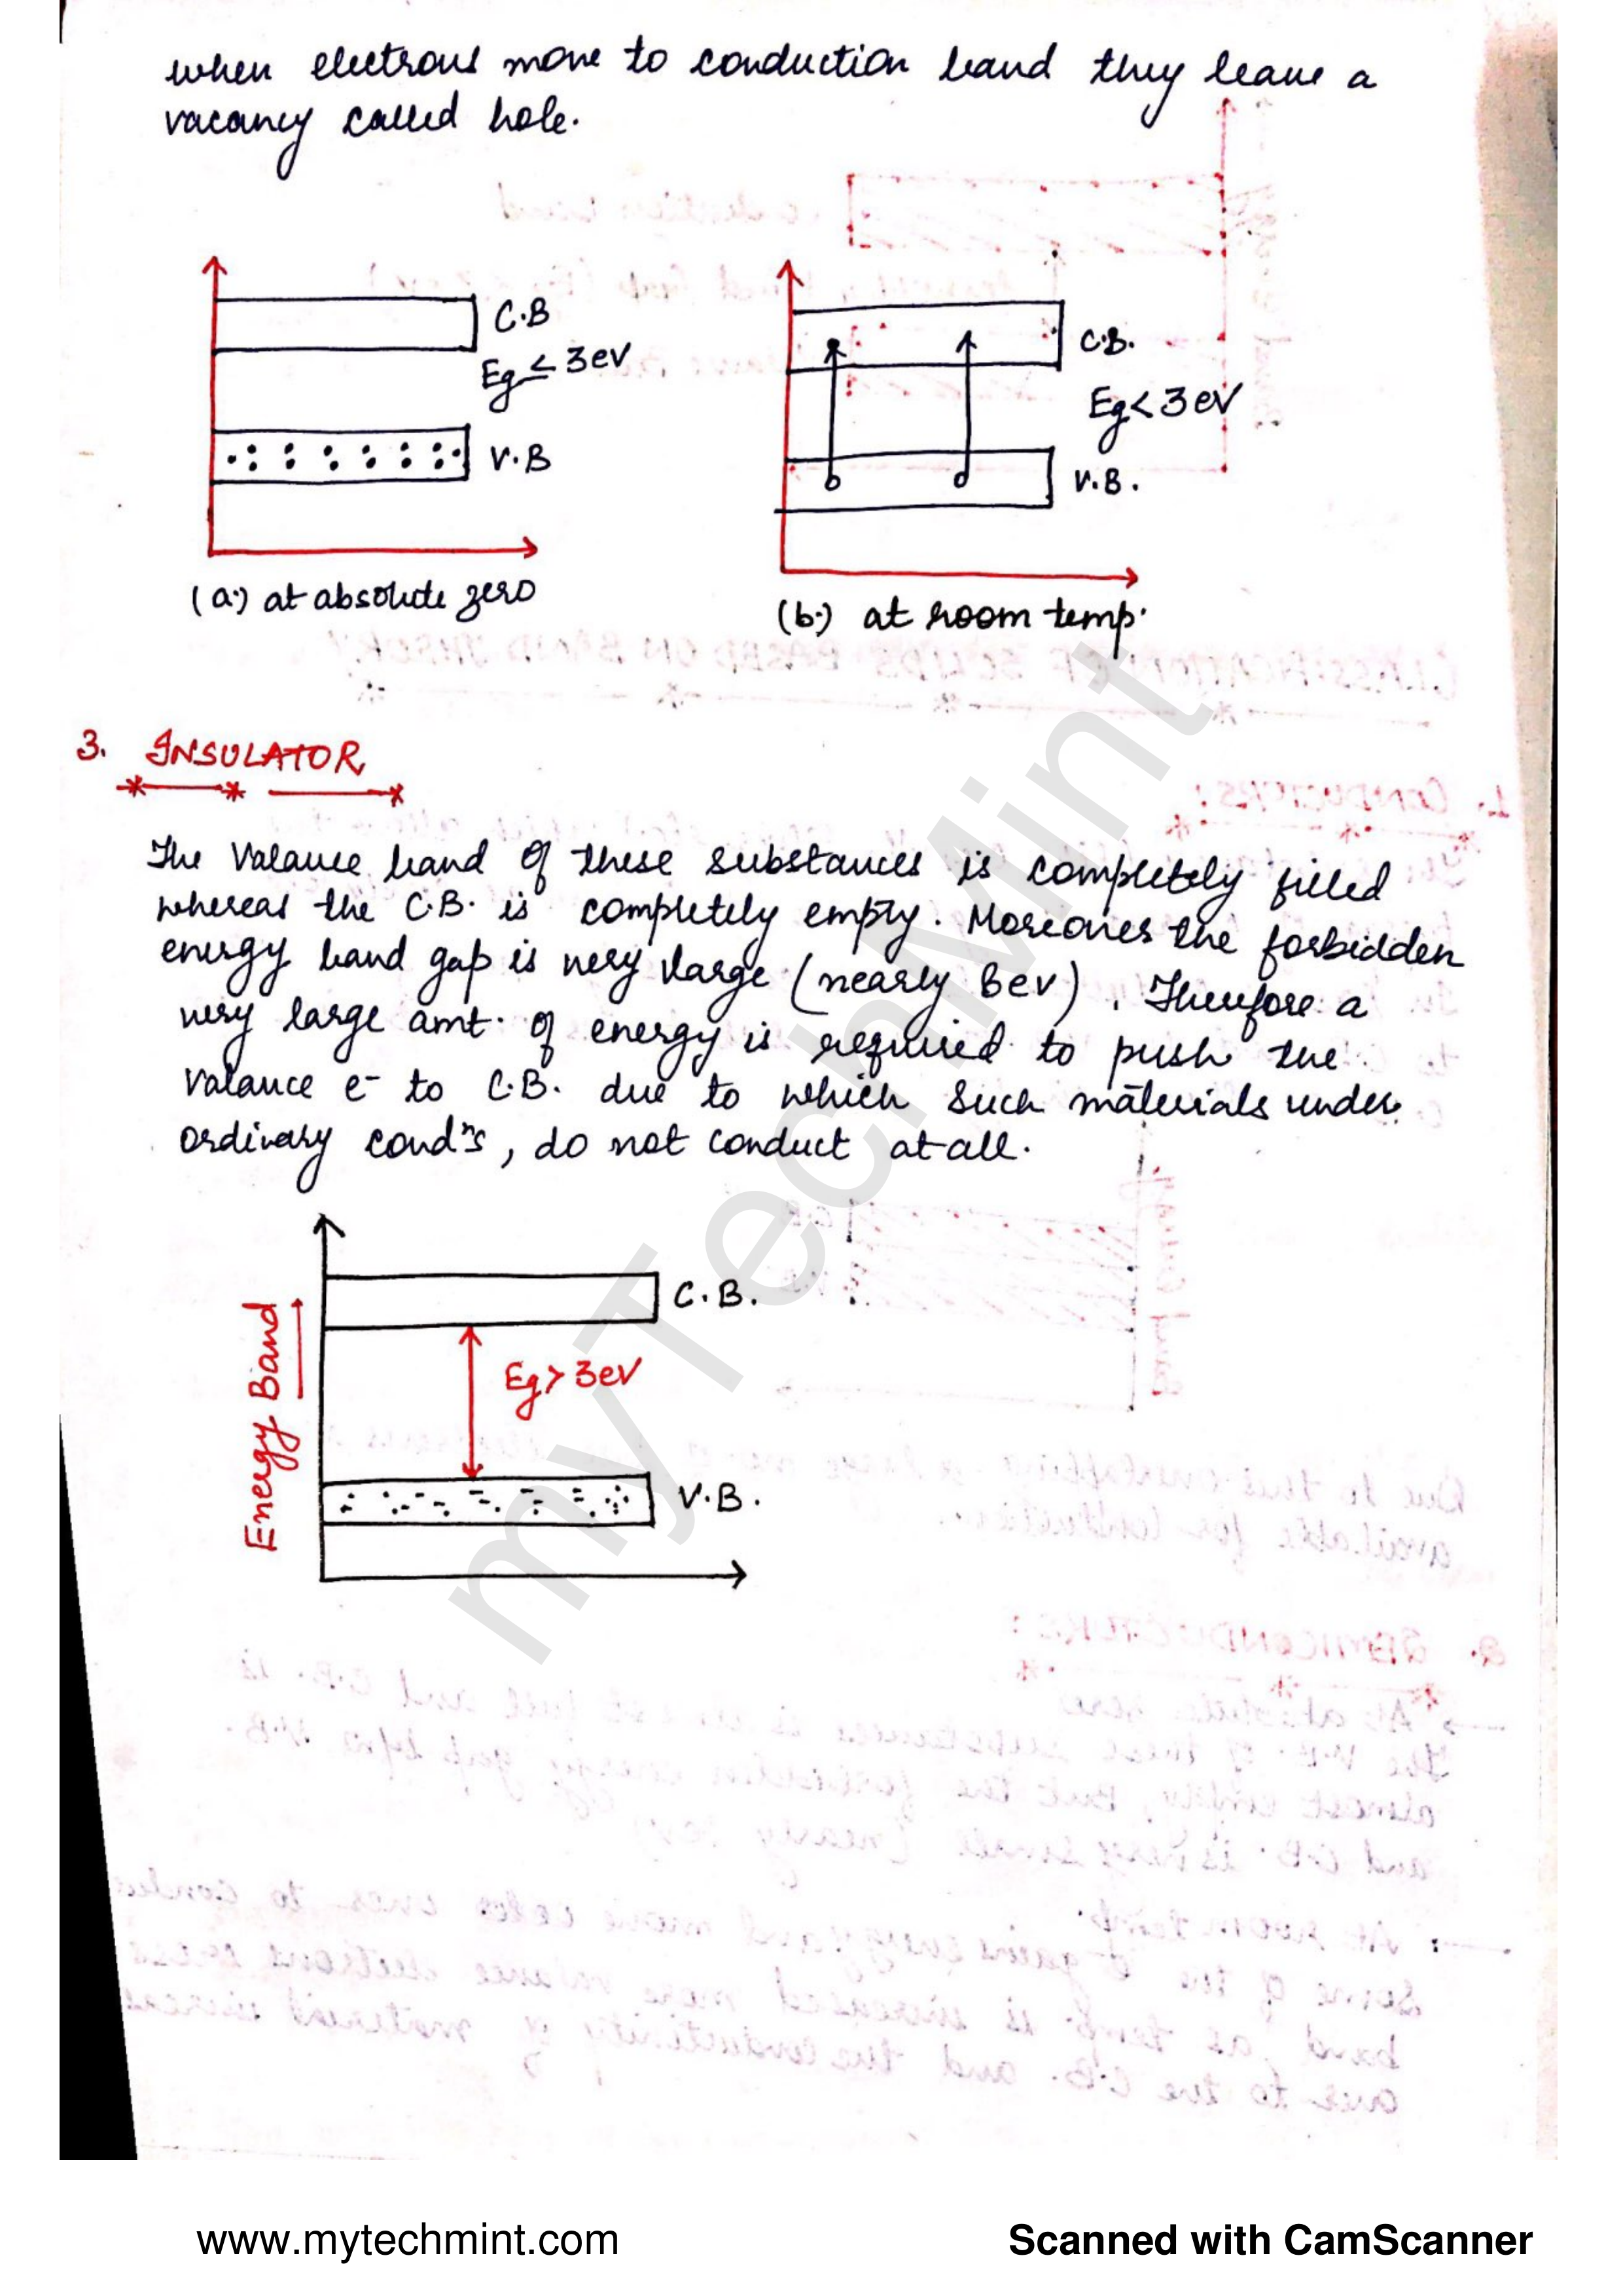 when electrons move to conduction band they leave a
vacancy called hole.
C.B
Eg ≤ 3eV
V.B
(a.) at absolute zero
C.B.
Eg < 3eV
V.B.
(b.) at room temp.
3. INSULATOR
The Valance band of these substances is completely filled
whereas the C.B. is completely empty. Moreover the forbidden
energy band gap is very large (nearly 8ev). Therefore a
very large amt. of energy is required to push the
valance e- to C.B. due to which such materials under
ordinary condⁿs, do not conduct at all.
Energy Band
C.B.
Eg > 3eV
V.B.
myTechMint
www.mytechmint.com
Scanned with CamScanner